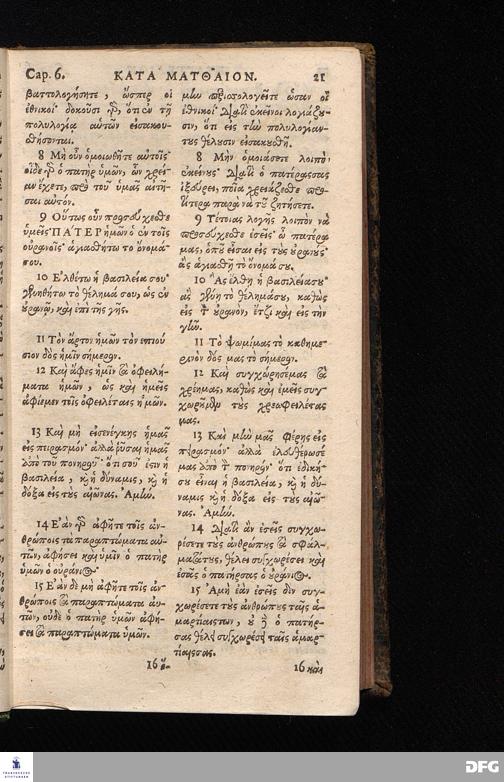 Cap. 6. ΚΑΤΑ ΜΑΤΘΑΙΟΝ. 21
βαττολογήσητε, ὥσπερ οἱ
ἐθνικοί· δοκοῦσι γὰρ, ὅτι ἐν τῇ
πολυλογία αὐτῶν εἰσακου-
θήσονται.
8 Μὴ οὖν ὁμοιωθῆτε αὐτοῖς·
οἶδε γὰρ ὁ πατὴρ ὑμῶν, ὧν χρεί-
αν ἔχετε, πρὸ τοῦ ὑμᾶς αἰτῆ-
σαι αὐτόν.
9 Οὕτως οὖν προσεύχεσθε
ὑμεῖς· ΠΑΤΕΡ ἡμῶν ὁ ἐν τοῖς
οὐρανοῖς· ἁγιασθήτω τὸ ὄνομά-
σου.
10 Ἐλθέτω ἡ βασιλεία σου·
γενηθήτω τὸ θέλημά σου, ὡς ἐν
οὐρανῷ, καὶ ἐπὶ τῆς γῆς.
11 Τὸν ἄρτον ἡμῶν τὸν ἐπιού
σιον δὸς ἡμῖν σήμερον.
12 Καὶ ἄφες ἡμῖν τὰ ὀφειλή-
ματα ἡμῶν, ὡς καὶ ἡμεῖς
ἀφίεμεν τοῖς ὀφειλέταις ἡμῶν.
13 Καὶ μὴ εἰσενέγκης ἡμᾶς
εἰς πειρασμὸν· ἀλλὰ ῥῦσαι ἡμᾶς
ἀπὸ τοῦ πονηροῦ· ὅτι σοῦ ἐστιν ἡ
βασιλεία, καὶ ἡ δύναμις, καὶ ἡ
δόξα εἰς τοὺς αἰῶνας. Ἀμήν.
14 Ἐὰν γὰρ ἀφῆτε τοῖς ἀν-
θρώποις τὰ παραπτώματα αὐ-
τῶν, ἀφήσει καὶ ὑμῖν ὁ πατὴρ
ὑμῶν ὁ οὐράνιος.
15 Ἐὰν δὲ μὴ ἀφῆτε τοῖς ἀν-
θρώποις τὰ παραπτώματα αὐ-
τῶν, οὐδὲ ὁ πατὴρ ὑμῶν ἀφή-
σει τὰ παραπτώματα ὑμῶν.
16 ὅ-
μὴν πολυλογεῖτε ὡσὰν οἱ
ἐθνικοί· διατὶ ἐκεῖνοι λογιάζου-
σιν, ὅτι εἰς τὴν πολυλογίαν-
τους θέλουσιν εἰσακουσθῆ.
8 Μὴν ὁμοιάσετε λοιπὸν
ἐκείνους· διατὶ ὁ πατέρασσας
ἐξεύρει, ποῖα χρειάζεσθε πρω-
ήτερα παρὰ νὰ τοῦ ζητήσετε.
9 Τέτοιας λογῆς λοιπὸν νὰ
προσεύχεσθε ἐσεῖς· ὦ πατέρα
μας, ὁποῦ εἶσαι εἰς τοὺς οὐρανούς·
ἂς ἁγιασθῆ τὸ ὄνομά σου.
10 Ἂς ἔλθη ἡ βασιλείασου·
ἂς γένῃ τὸ θέλημάσου, καθὼς
εἰς τὸν οὐρανὸν, ἔτζι καὶ εἰς τὴν
γῆν.
11 Τὸ ψωμίμας τὸ καθημε-
ρινὸν δός μας τὸ σήμερον.
12 Καὶ συγχώρησέμας τὰ
χρέημας, καθὼς καὶ ἐμεῖς συγ-
χωροῦμεν τοὺς χρεωφειλέτας
μας.
13 Καὶ μὴν μᾶς φέρης εἰς
πειρασμὸν· ἀλλὰ ἐλευθέρωσέ
μας ἀπὸ τὸν πονηρόν· ὅτι ἐδική-
σου εἶναι ἡ βασιλεία, καὶ ἡ δύ-
ναμις καὶ ἡ δόξα εἰς τοὺς αἰῶ-
νας. Ἀμήν.
14 Διατὶ ἂν ἐσεῖς συγχω-
ρέσετε τοὺς ἀνθρώπους τὰ σφάλ-
ματάτους, θέλει συγχωρέσει καὶ
ἐσᾶς ὁ πατήρσας ὁ οὐράνιος.
15 Ἀμὴ ἐὰν ἐσεῖς δὲν συγ-
χωρέσετε τοὺς ἀνθρώπους ταῖς ἁ-
μαρτίαιςτων, οὐδὲ ὁ πατήρ-
σας θέλει συγχωρέσῃ ταῖς ἁμαρ-
τίαιςσας.
16 καὶ
DFG